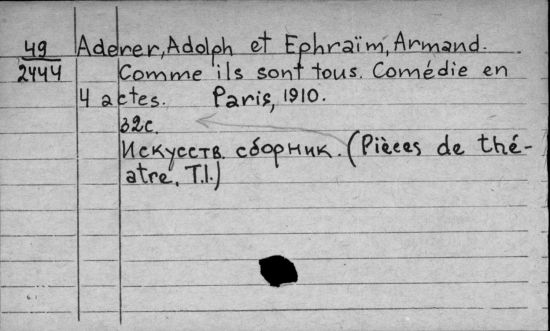 49 Aderer, Adolph et Ephraïm, Armand.
2444 Comme ils sont tous. Comédie en
4 actes. Paris, 1910.
32с.
Искусств. сборник. (Pièces de thé-
atre, T.I.)